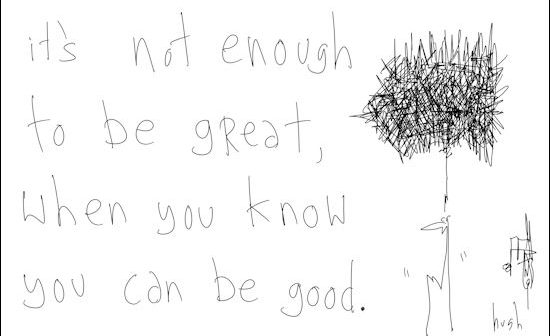 it's not enough
to be great,
when you know
you can be good.
" "
hugh